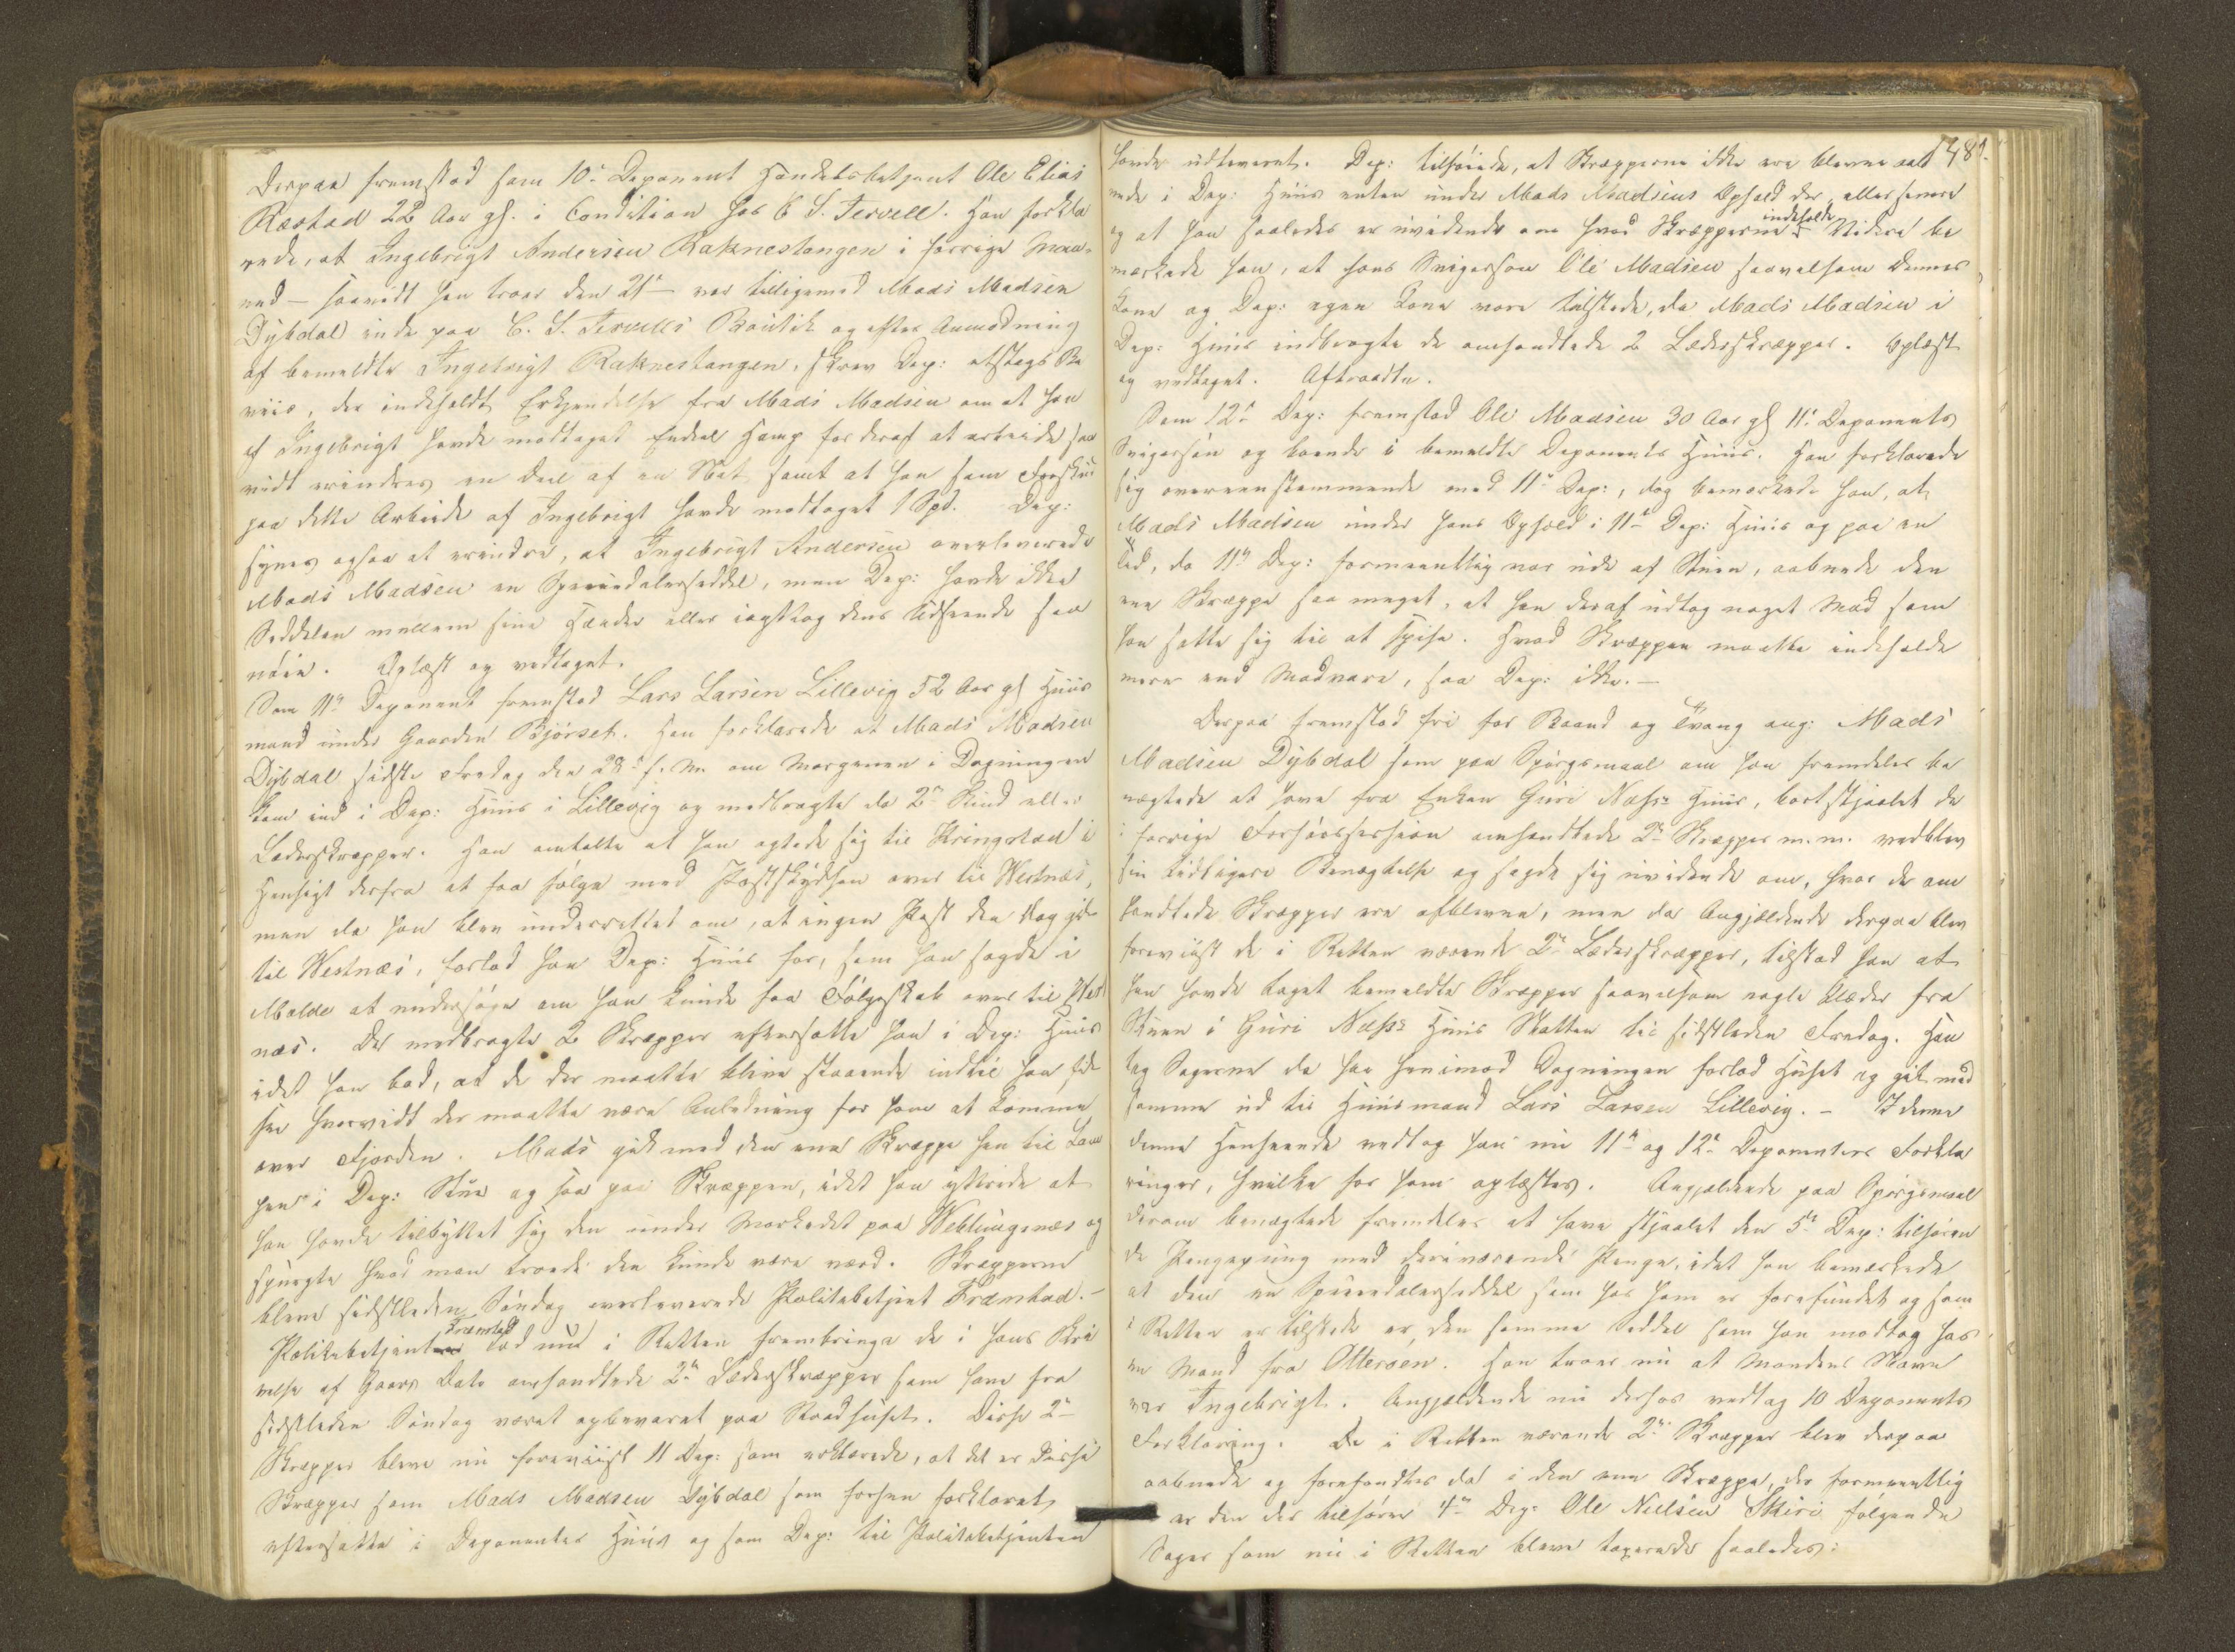 Derpaa fremstod som 10de Deponent Handelsbetjent Ole Elias
Ræstad 22 Aar gl. i Condition hos C. S. Tervell. Han forkla
rede, at Ingebrigt Andersen Raknestangen i forrige Maa-
ned – saavidt han troer den 21de – var tilligemed Mads Madsen
Dybdal inde paa C. S. Tervells Boutik og efter Anmodning
af bemeldte Ingebrigt Raknestangen, skrev Dep: et Slags Be
viis, der indeholdt Erkjendelse fra Mads Madsen om at han
af Ingebrigt havde modtaget Endeel Hamp for deraf at arbeide saa
vidt erindres en Deel af en Not samt at han som Forskud
paa dette Arbeide af Ingebrigt havde modtaget 1 Spd. Dep:
synes ogsaa at erindre, at Ingebrigt Andersen overleverede
Mads Madsen en Speciedalerseddel, men Dep: havde ikke
Seddelen mellem sine Hænder eller iagttog dens Udseende saa
nøie. Oplæst og vedtaget.
Som 11te Deponent fremstod Lars Larsen Lillevig 52 Aar gl Huus
mand under Gaarden Bjørset. Han forklarede at Mads Madsen
Dybdal sidste Fredag den 28de f. M. om Morgenen i Dagningen
kom ind i Dep: Huus i Lillevig og medbragte da 2de Skind eller
Læderskræpper. Han omtalte at han agtede sig til Kringstad i
Hensigt derfra at faa følge med Postskydsen over til Westnæs,
men da han blev underrettet om, at ingen Post den Dag gik
til Westnæs, forlod han Dep: Huus for, som han sagde i
Molde at undersøge om han kunde faa Følgeskab over til West
næs. De medbragte 2 Skræpper eftersatte han i Dep: Huus
idet han bad, at de der maatte blive staaende indtil han fik
see hvorvidt der maatte være Anledning for ham at komme
over Fjorden. Mads gik med den ene Skræppe hen til Lam
pen i Dep: Stue og saa paa Skræppen, idet han yttrede at
han havde tilbyttet sig den under Markedet paa Weblungsnæs og
spurgte hvad man troede den kunde være værd. Skræpperne
bleve sidstleden Søndag overleverede Politibetjent Frænstad. –
Politibetjent Frænstad lod nu i Retten frembringe de i hans Skri
velse af Gaars Dato omhandlede 2de Læderskræpper som have fra
sidstleden Søndag været opbevaret paa Raadhuset. Disse 2de
Skræpper bleve nu foreviist 11 Dep: som erklærede, at det er disse
Skræpper som Mads Madsen Dybdal som forhen forklaret,
eftersatte i Deponentes Huus og som Dep: til Politibetjenten
481.
havde udleveret. Dep: tilføiede, at Skræpperne ikke ere blevne aab
nede i Dep: Huus enten under Mads Madsens Ophold der, eller senere
og at han saaledes er uvidende om hvad Skræpperne indeholde. Videre be
mærkede han, at hans Svigersøn Ole Madsen saavelsom dennes
Kone og Dep: egen Kone vare tilstede, da Mads Madsen i
Dep: Huus indbragte de omhandlede 2 Læderskræpper. Oplæst
og vedtaget. Aftraadte.
Som 12te Dep: fremstod Ole Madsen 30 Aar gl 11te Deponents
Svigersøn og boende i bemeldte Deponents Huus. Han forklarede
sig overeensstemmende med 11te Dep:, dog bemærkede han, at
Mads Madsen under hans Ophold i 11te Dep: Huus og paa en
Tid, da 11te Dep: formeentlig var ude af Stuen, aabnede den
ene Skræppe saa meget, at han deraf udtog noget Mad som
han satte sig til at spise. Hvad Skræppen maatte indeholde
mere end Madvare, saa Dep: ikke. –
Derpaa fremstod fri for Baand og Tvang ang: Mads
Madsen Dybdal som paa Spørgsmaal om han fremdeles be
nægtede at have fra Enken Guri Næss's Huus, bortstjaalet de
i forrige Forhørssession omhandlede 2de Skræpper m. m. vedblev
sin tidligere Benægtelse og sagde sig uvidende om, hvor de om
handlede Skræpper ere afblevne, men da Angjældende derpaa blev
foreviist de i Retten værende 2de Læderskræpper, tilstod han at
han havde taget bemeldte Skræpper saavelsom nogle Klæder fra
Stuen i Guri Næss's Huus Natten til sidstleden Fredag. Han
tog Sagerne da han henimod Dagningen forlod Huset og gik med
samme ud til Huusmand Lars Larsen Lillevig. – I denne
denne Henseende vedtog han nu 11te og 12te Deponenters Forkla
ringer, hvilke for ham oplæstes. Angjældende paa Spørgsmaal
derom benægtede fremdeles at have stjaalet den 5te Dep: tilhøren
de Pengepung med deriværende Penge, idet han bemærkede
at den ene Speciedalerseddel som hos ham er forefundet og som
i Retten er tilstede er den samme Seddel som han modtog hos
en Mand fra Otterøen. Han troer nu at Mandens Navn
var Ingebrigt. Angjældende nu derhos vedtog 10 Deponents
Forklaring. De i Retten værende 2de Skræpper blev derpaa
aabnede og forefandtes da i den ene Skræppe, der formeentlig
er den der tilhører 4de Dep: Ole Nielsen Skiri følgende
Sager som nu i Retten bleve taxerede saaledes: